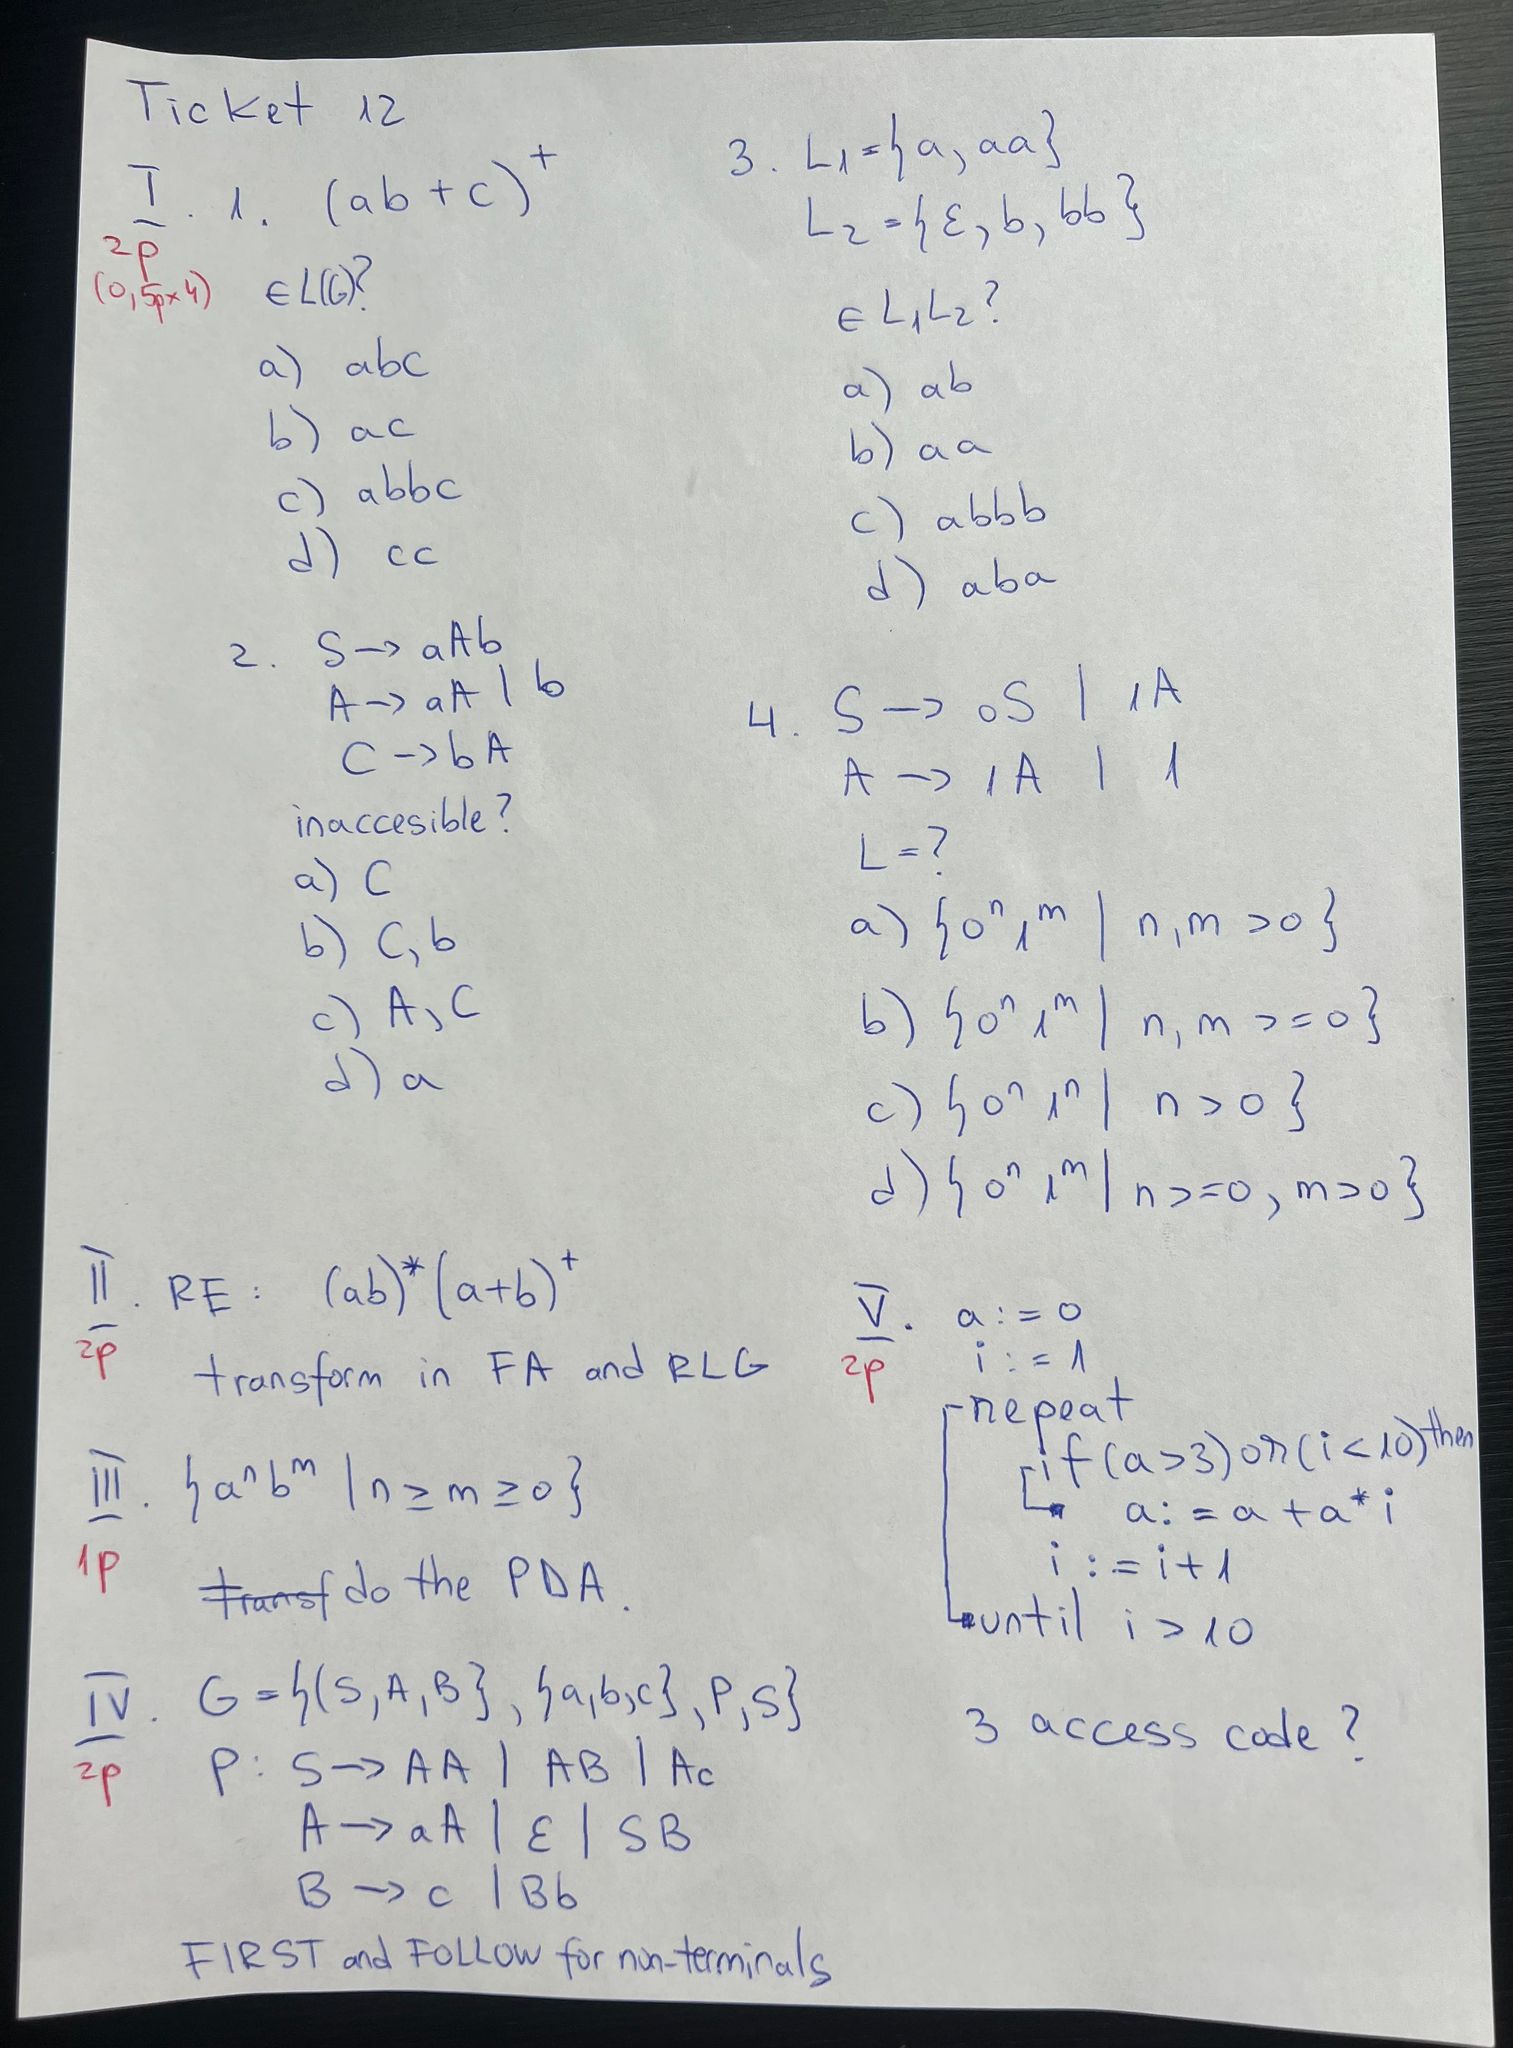 Ticket 12
I. 1. (ab + c)⁺
2p
(0,5p×4)
∈ L(G)?
a) abc
b) ac
c) abbc
d) cc
2. S -> aAb
A -> aA | b
C -> bA
inaccesible?
a) C
b) C, b
c) A, C
d) a
3. L₁ = {a, aa}
L₂ = {ε, b, bb}
∈ L₁L₂?
a) ab
b) aa
c) abbb
d) aba
4. S -> 0S | 1A
A -> 1A | 1
L = ?
a) {0ⁿ1ᵐ | n, m > 0}
b) {0ⁿ1ᵐ | n, m >= 0}
c) {0ⁿ1ⁿ | n > 0}
d) {0ⁿ1ᵐ | n >= 0, m > 0}
II. RE: (ab)*(a+b)⁺
2p
transform in FA and RLG
III. {aⁿbᵐ | n ≥ m ≥ 0}
1p
transf do the PDA.
IV. G = {(S, A, B}, {a, b, c}, P, S}
2p
P: S -> AA | AB | Ac
A -> aA | ε | SB
B -> c | Bb
FIRST and FOLLOW for non-terminals
V. a := 0
2p
i := 1
repeat
if (a > 3) or (i < 10) then
a := a + a * i
i := i + 1
until i > 10
3 access code?